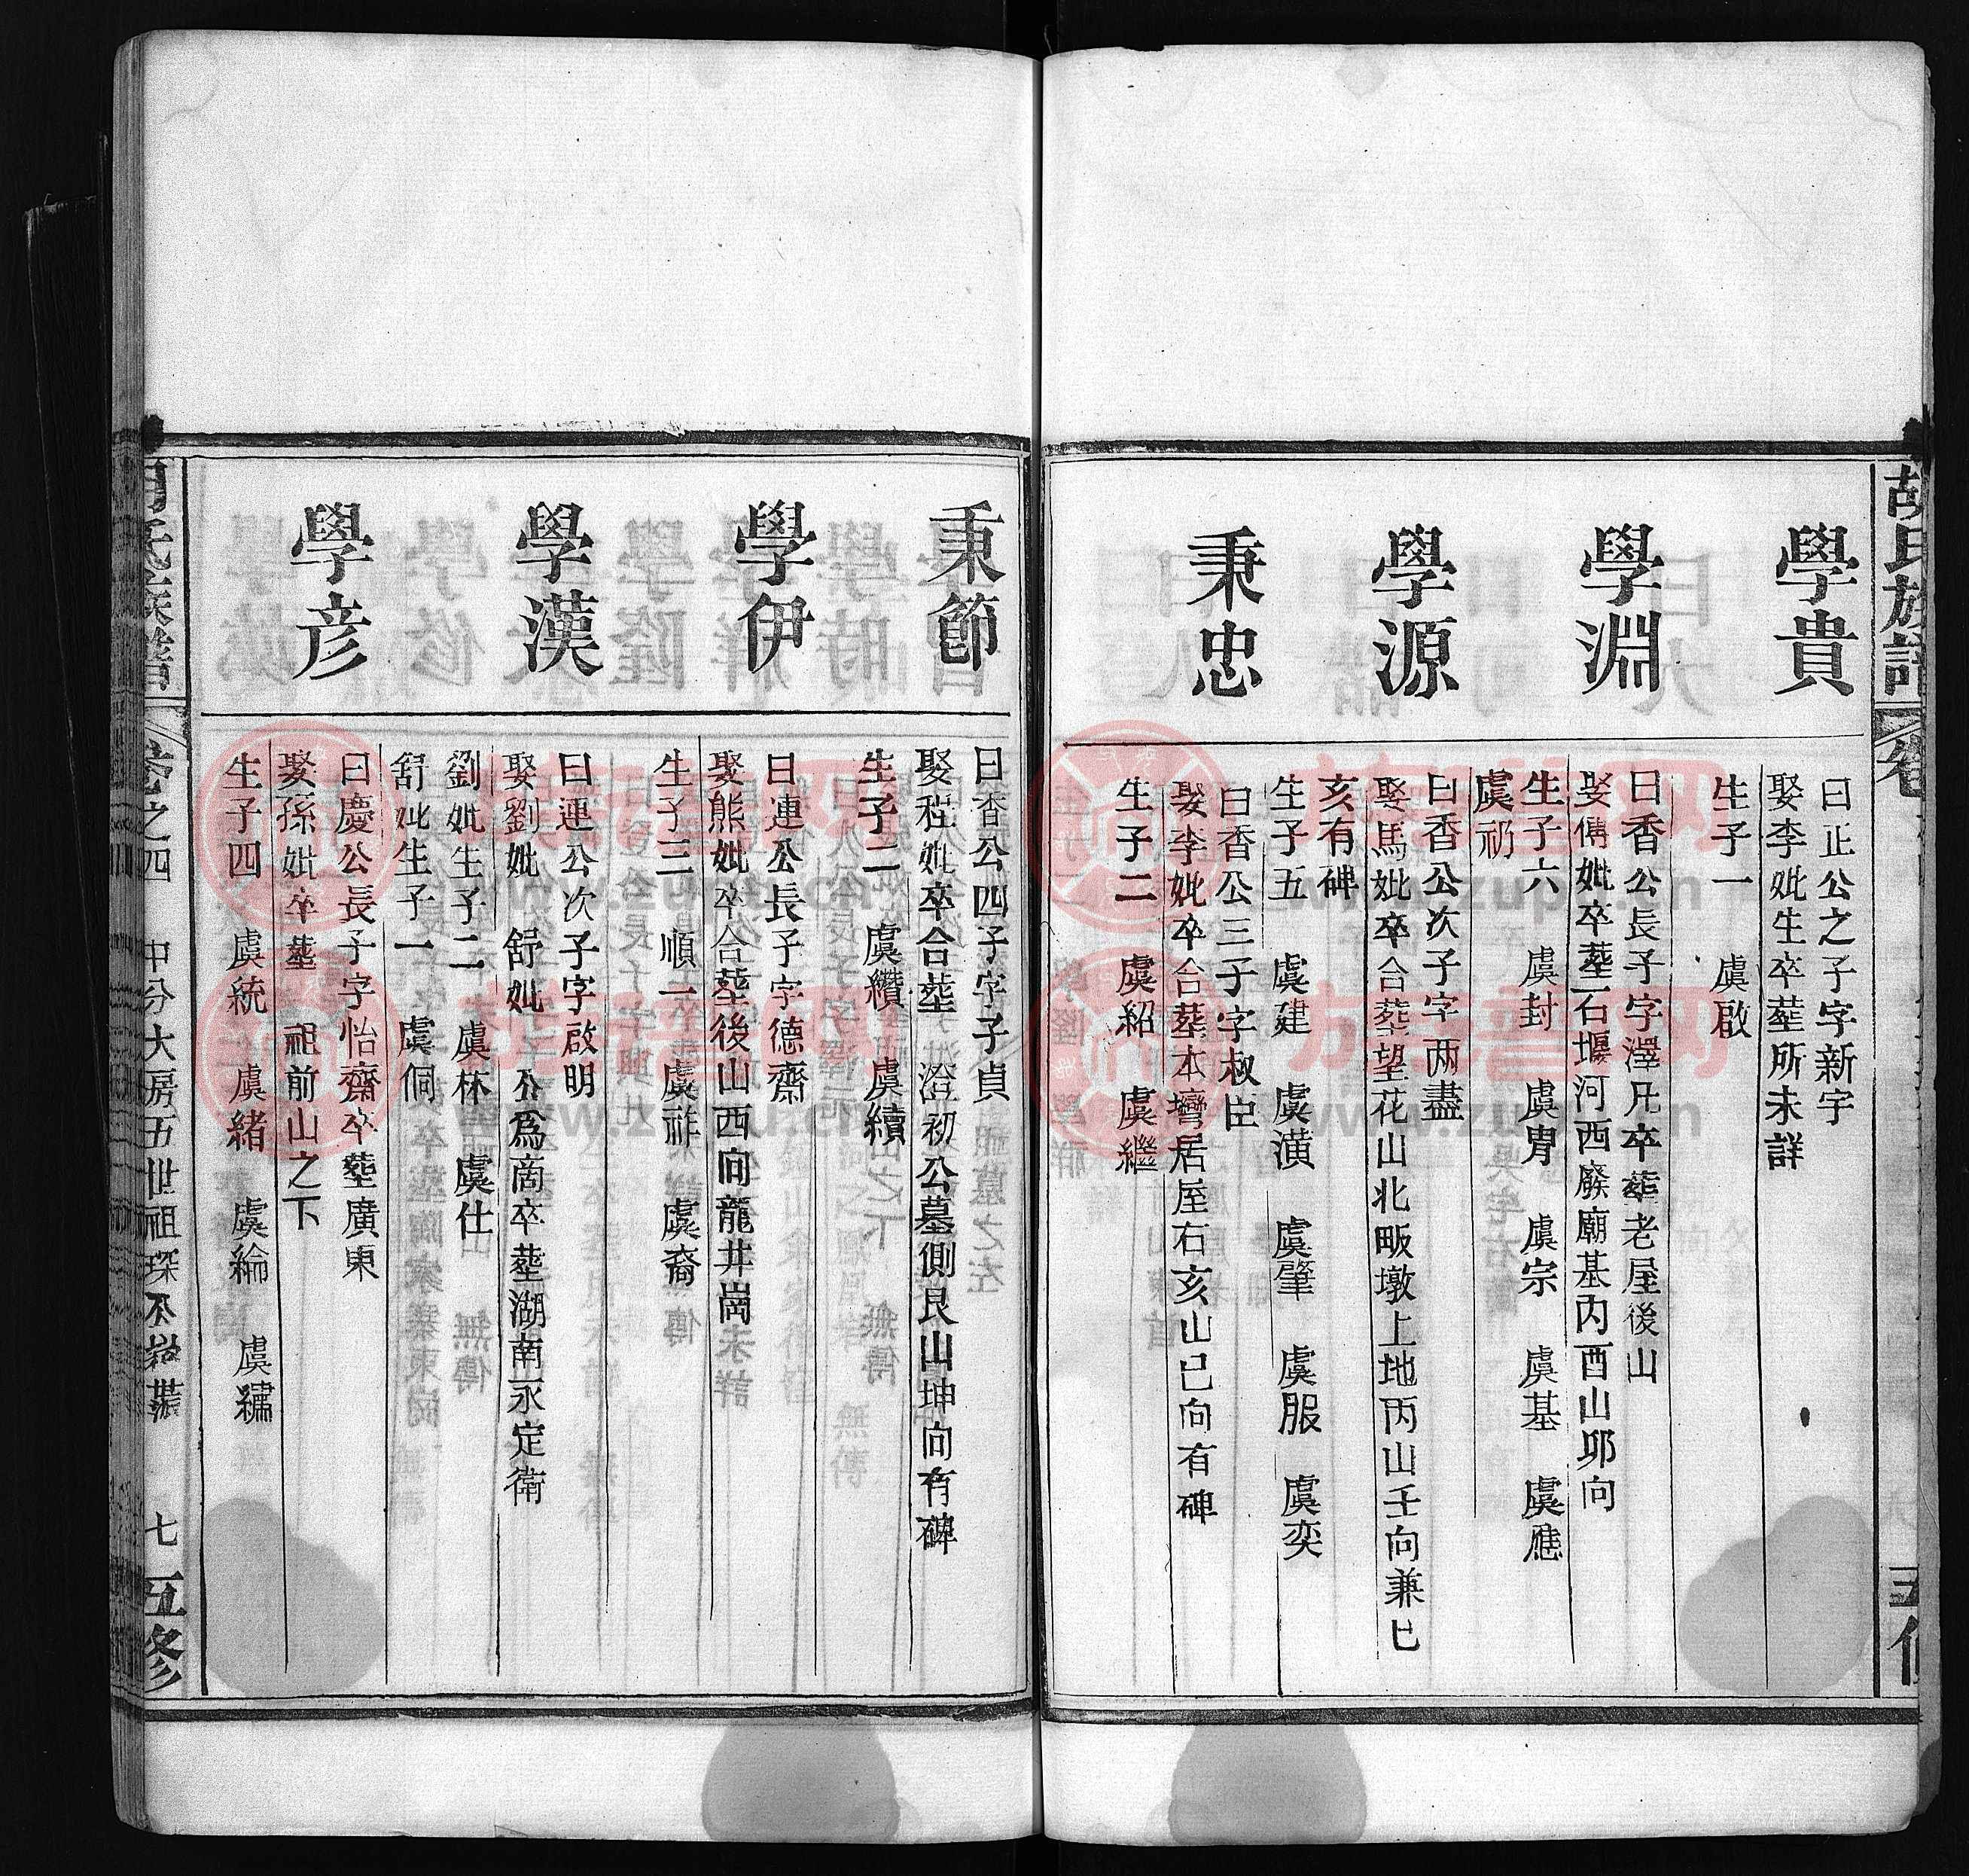 胡氏族譜
五修
學貴
曰正公之子字新宇
娶李妣生卒塟所未詳
生子一 虞啟
學淵
曰香公長子字澤凡卒塟老屋後山
娶傅妣卒塟石堰河西廢廟基內酉山卯向
生子六 虞封 虞胄 虞宗 虞基 虞應
虞礽
學源
曰香公次子字两盡
娶馬妣卒合塟望花山北畈墩上地丙山壬向兼巳
亥有碑
生子五 虞建 虞潢 虞肇 虞服 虞奕
秉忠
曰香公三子字叔臣
娶李妣卒合塟本灣居屋右亥山巳向有碑
生子二 虞紹 虞繼
秉節
曰香公四子字子貞
娶程妣卒合塟 澄初公墓側艮山坤向有碑
生子二 虞纘 虞續
學伊
曰連公長子字德齋
娶熊妣卒合塟後山西向龍井崗
生子三 順一 虞祥 虞裔
學漢
曰連公次子字啟明
娶劉妣 舒妣 公為商卒塟湖南永定衛
劉妣生子二 虞林 虞仕
舒妣生子一 虞侗
學彦
曰慶公長子字怡齋卒塟廣東
娶孫妣卒塟 祖前山之下
生子四 虞統 虞緒 虞綸 虞繡
氏族譜
卷之四 中分大房五世祖琛公
七 五修
族譜网
www.zupu.cn